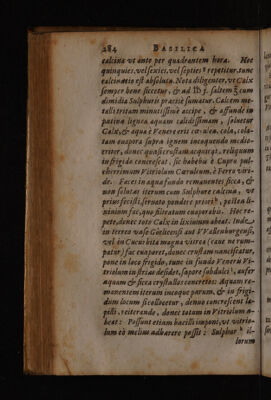 284 BASILICA
calcina vt ante per quadrantem hora. Hoc
quinquies, vel sexies, vel septies repetitur, tunc
calcinatio est absoluta. Nota diligenter, vt Calx
semper bene siccetur, & ad ℔ j. saltem ℥ cum
dimidia Sulphuris praecisè sumatur. Calcem me-
talli tritam minutissimè accipe, & affunde in
patina lignea aquam calidissimam, soluetur
Calx, & aqua è Venere erit cœrulea. cola, cola-
tam euapora supra ignem incoquendo medio-
criter, donec quasi crustam acquirat, reliquam
in frigido concrescat, sic habebis è Cupro pul-
cherrimum Vitriolum Cœruleum, è Ferro viri-
de. Faces in aqua fundo remanentes sicca, &
non solutas iterum cum Sulphure calcina, vt
prius fecisti, seruato pondere priori, postea li-
ninium fac, quo filtratum euaporabis. Hoc re-
pete, donec tota Calx in lixiuium abeat. Inde
in terreo vase Golicensi aut VValdenburgensi,
vel in Cucurbita magna vitrea (caue ne rum-
patur) fac euaporet, donec crustam nanciscatur,
pone in loco frigido, tunc in fundo Veneris Vi-
triolum in strias desidet, sapore subdulci, aufer
aquam & sicca crystallos concretos: Aquam re-
manentem iterum incoque parum, & in frigi-
dum locum sic collocetur, denuo concrescent la-
pilli, reiterande, donec totum in Vitriolum a-
beat: Possunt etiam bacilli imponi, vt vitrio-
lum eò melius adhaerere possit: Sulphur il-
lorum